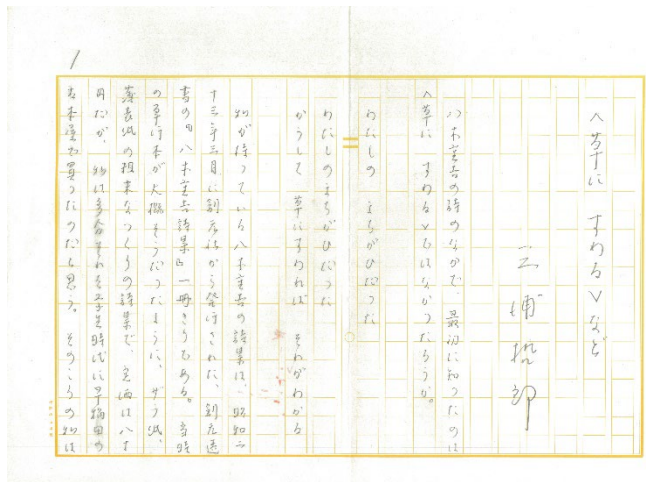 1
〈草に すわる〉など
三浦哲郎
八木重吉の詩のなかで、最初に知ったのは
〈草に すわる〉ではなかつたろうか。
わたしの まちがひだつた
わたしのまちがひだつた
かうして 草にすわれば それがわかる
私が持っている八木重吉の詩集は、昭和二
十三年三月に創元社から発行された、創元選
書の『八木重吉詩集』一冊きりである。当時
の単行本が大概そうだったように、ザラ紙、
落丁紙の粗末なつくりの詩集で、定価は八十
円だが、私は多分それを学生時代に早稲田の
古本屋で買ったのだと思う。そのころの私は